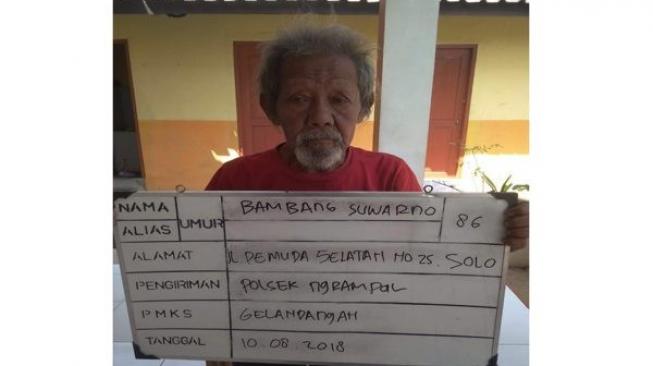 NAMA UMUR BAMBANG SUWARNO 86
ALIAS
ALAMAT JL PEMUDA SELATAN NO 25. SOLO
PENGIRIMAN POLSEK NGRAMPAL
PMKS GELANDANGAN
TANGGAL 10.08.2018